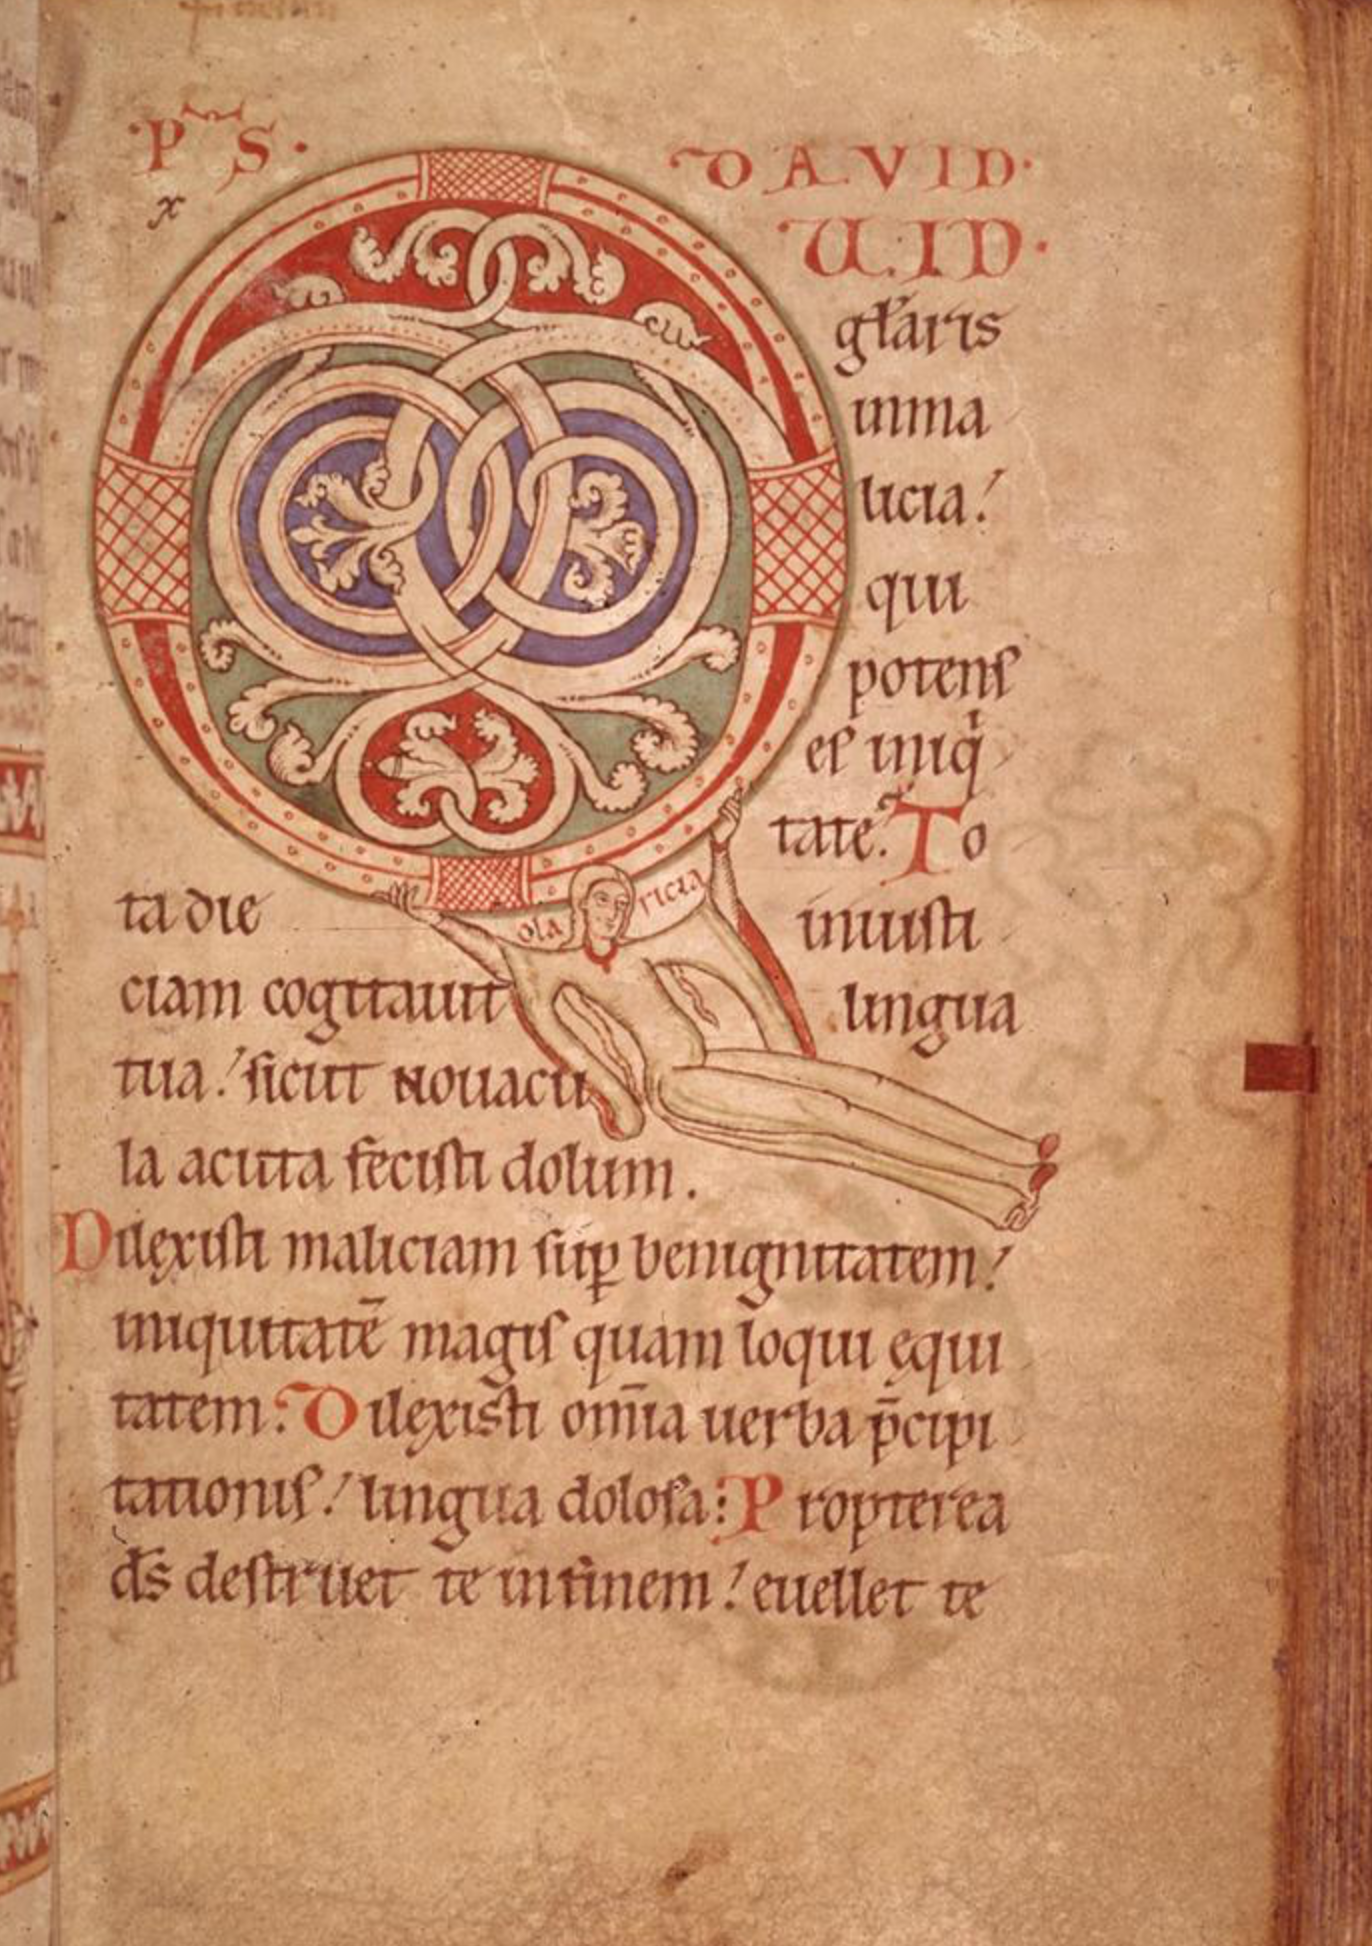 ·P S·
DAVID·
x
Q
UID·
gl̄aris
inma
licia!
qui
potenſ
eſ iniqͥ
tate. To
Claricia
ta die iniuſti
ciam cogitauit lingua
tua! ſicut nouacu
la acuta feciſti dolum.
Dilexiſti maliciam ſuꝑ benignitatem!
iniquitatē magiſ quam loqui ęqui
tatem. Dilexisti om̄ia uerba p̄cipi
tationiſ! lingua doloſa: Propterea
d̄s deſtruet te infinem! euellet te